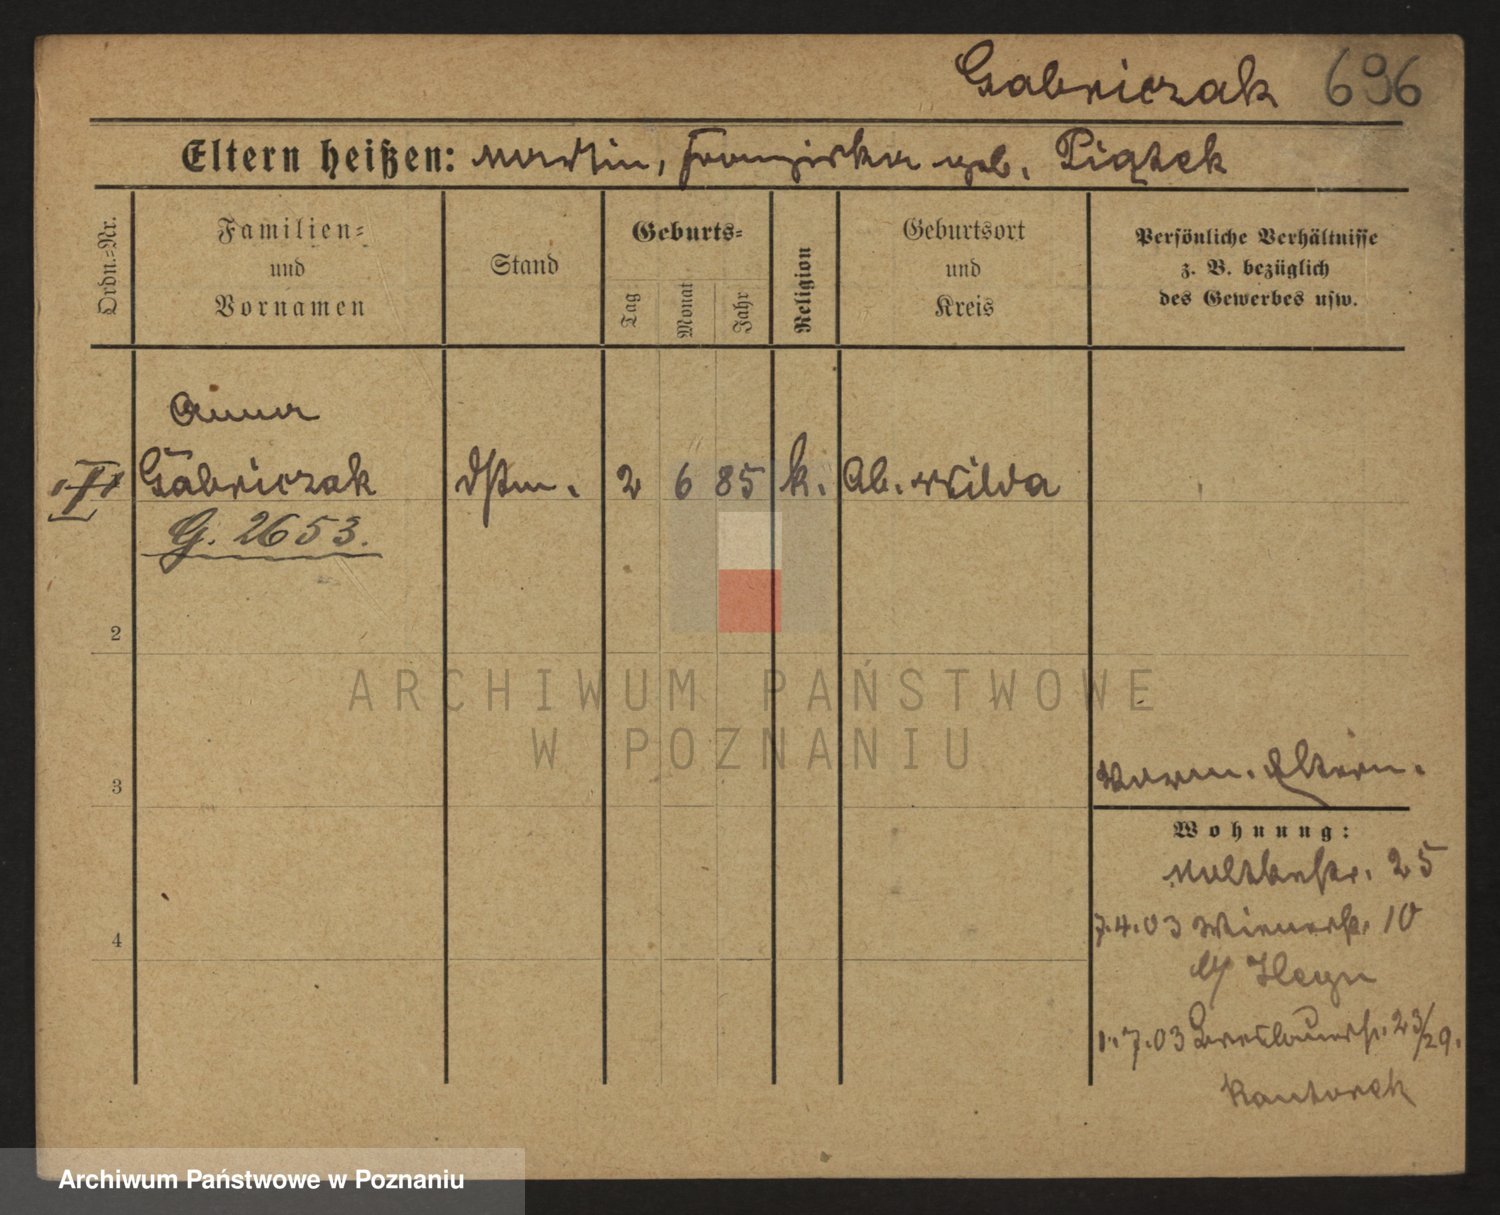 Gabriczak 696
Eltern heißen: Martin, Franziska geb. Piątek
Ordn.-Nr.
Familien-
und
Vornamen
Stand
Geburts-
Tag
Monat
Jahr
Religion
Geburtsort
und
Kreis
Persönliche Verhältnisse
z. B. bezüglich
des Gewerbes usw.
Anna
Gabriczak
Dstm. 2 6 85 k. Ob. Wilda
G. 2653.
2
3
4
ARCHIWUM PAŃSTWOWE
W POZNANIU
Eltern.
Wohnung:
Moltkestr. 25
7.4.03 Wienerstr. 10
b/ Heyn
1.7.03 Breslauerstr. 23/29.
Kantorek
Archiwum Państwowe w Poznaniu